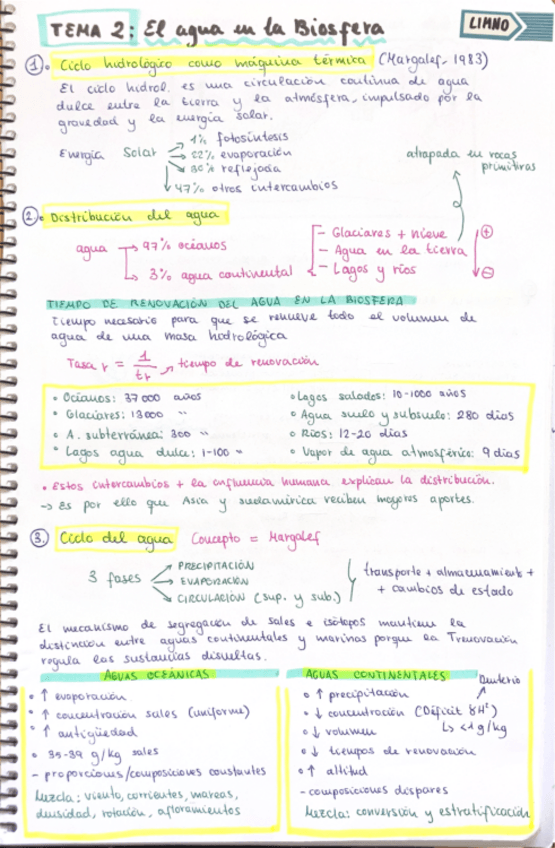 TEMA 2: El agua en la Biosfera
LIMNO
1. Ciclo hidrológico como máquina térmica (Margalef, 1983)
El ciclo hidrol. es una circulación continua de agua
dulce entre la tierra y la atmósfera, impulsado por la
gravedad y la energía solar.
Energía Solar
1% fotosíntesis
22% evaporación
30% reflejada
47% otros intercambios
atrapada en rocas
primitivas
2. Distribución del agua
agua → 97% océanos
↳ 3% agua continental
- Glaciares + nieve
- Agua en la tierra
- Lagos y ríos
⊕
⊖
TIEMPO DE RENOVACIÓN DEL AGUA EN LA BIOSFERA
Tiempo necesario para que se renueve todo el volumen de
agua de una masa hidrológica
Tasa r = 1/tr → tiempo de renovación
• Océanos: 37000 años
• Glaciares: 13000 "
• A. subterránea: 300 "
• Lagos agua dulce: 1-100 "
• Lagos salados: 10-1000 años
• Agua suelo y subsuelo: 280 días
• Ríos: 12-20 días
• Vapor de agua atmosférico: 9 días
• Estos intercambios + la influencia humana explican la distribución.
→ Es por ello que Asia y sudamérica reciben mayores aportes.
3. Ciclo del agua Concepto = Margalef
3 fases
PRECIPITACIÓN
EVAPORACIÓN
CIRCULACIÓN (sup. y sub.)
transporte + almacenamiento +
+ cambios de estado
El mecanismo de segregación de sales e isótopos mantiene la
distinción entre aguas continentales y marinas porque la Trenovación
regula las sustancias disueltas.
AGUAS OCEÁNICAS
• ↑ evaporación
• ↑ concentración sales (uniforme)
• ↑ antigüedad
• 35-39 g/kg sales
- proporciones/composiciones constantes
Mezcla: viento, corrientes, mareas,
densidad, rotación, afloramientos
AGUAS CONTINENTALES
Deuterio
• ↑ precipitación
• ↓ concentración (Déficit δH²)
↳ <1 g/kg
• ↓ volumen
• ↓ tiempos de renovación
• ↑ altitud
- composiciones dispares
Mezcla: conversión y estratificación